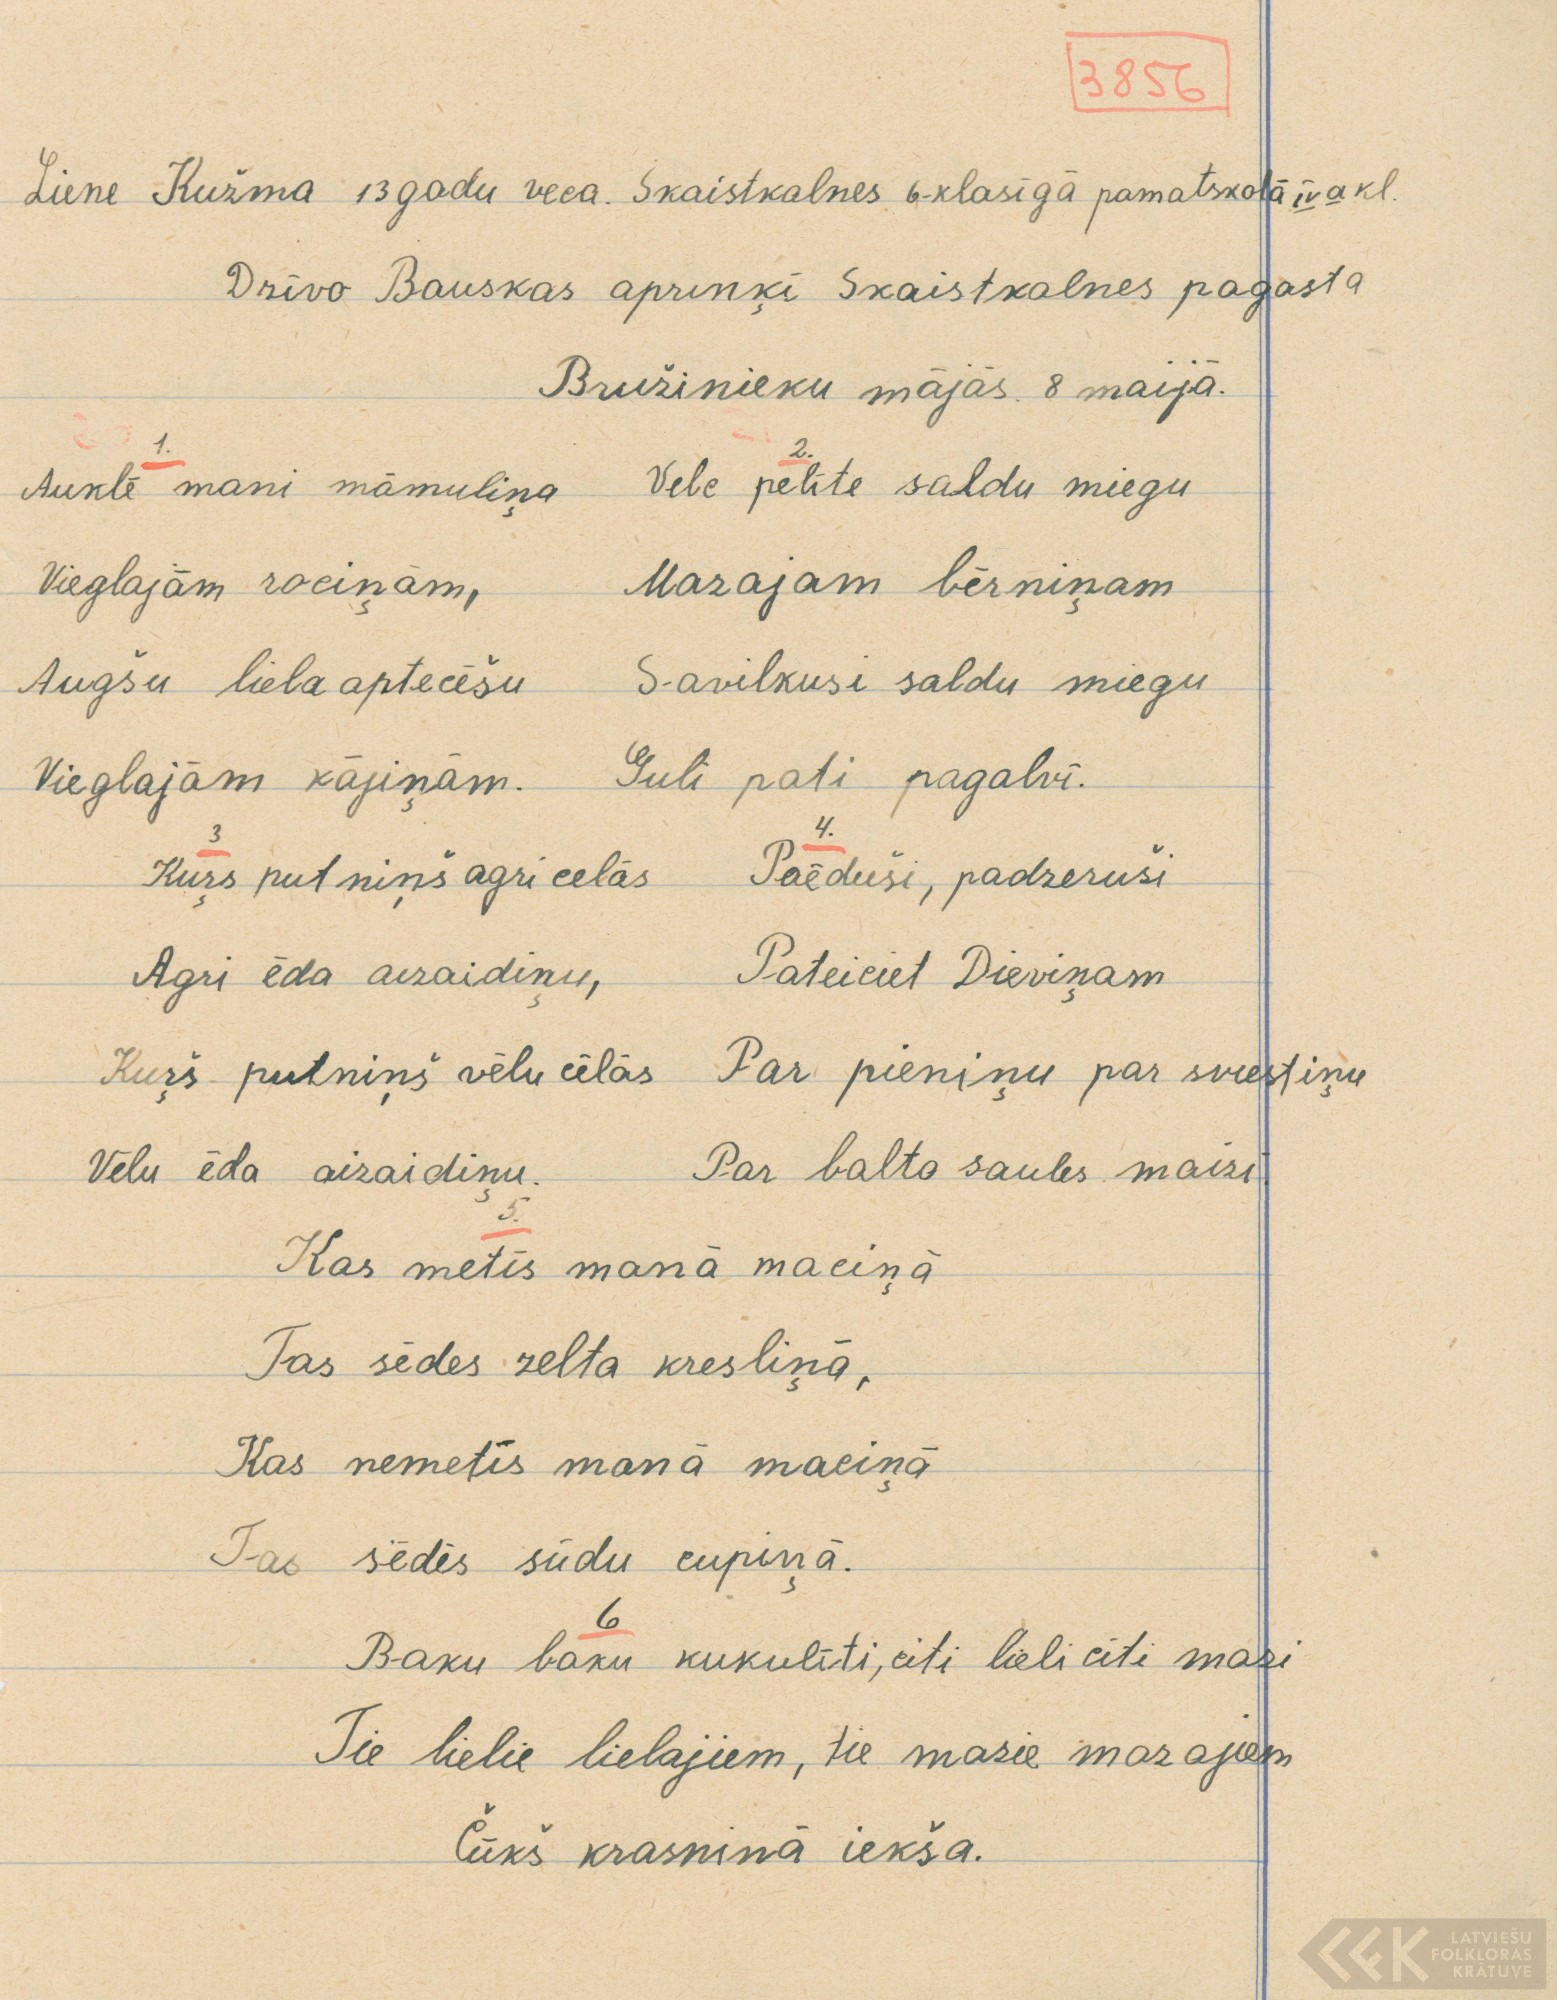 3856
Liene Kužma 13 gadu veca. Skaistkalnes 6-klasīgā pamatskolā IV a kl.
Dzīvo Bauskas apriņķī Skaistkalnes pagasta
Bružinieku mājās. 8 maijā.
1.
Auklē mani māmuliņa
Vieglajām rociņām,
Augšu liela aptecēšu
Vieglajām kājiņām.
2.
Velc pelīte saldu miegu
Mazajam bērniņam
Savilkusi saldu miegu
Guli pati pagalvī.
3
Kuŗs putniņš agri cēlās
Agri ēda aizaidiņu,
Kuŗš putniņš vēlu cēlās
Vēlu ēda aizaidiņu.
4.
Paēduši, padzeruši
Pateiciet Dieviņam
Par pieniņu par sviestiņu
Par balto saules maizi.
5.
Kas metīs manā maciņā
Tas sēdēs zelta kresliņā,
Kas nemetīs manā maciņā
Tas sēdēs sūdu cupiņā.
6
Baku baku kukulīti, citi lieli citi mazi
Tie lielie lielajiem, tie mazie mazajiem
Čūkš krasniņā iekša.
LATVIEŠU
FOLKLORAS
KRĀTUVE